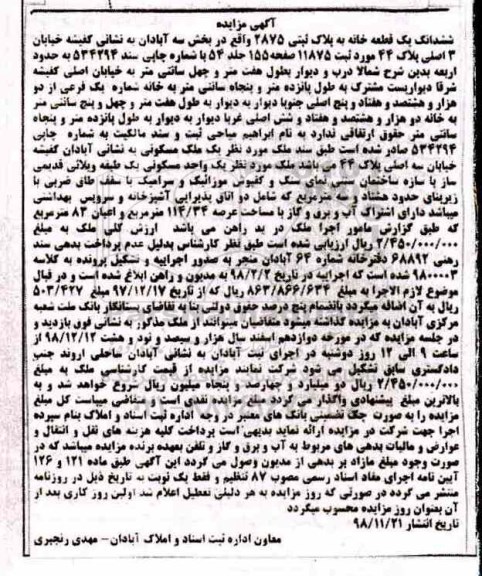 آگهی مزایده
ششدانگ یک قطعه خانه به پلاک ثبتی ۲۸۷۵ واقع در بخش سه آبادان به نشانی کفیشه خیابان
۳ اصلی پلاک ۴۴ مورد ثبت ۱۱۸۷۵ صفحه ۱۵۵ جلد ۵۴ با شماره چاپی سند ۵۳۴۲۹۴ به حدود
اربعه بدین شرح شمالا درب و دیوار بطول هفت متر و چهل سانتی متر به خیابان اصلی کفیشه
شرقا دیواریست مشترک به طول پانزده متر و پنجاه سانتی متر به خانه شماره یک فرعی از دو
هزار و هشتصد و هفتاد و پنج اصلی جنوبا دیوار به دیوار به طول هفت متر و چهل و پنج سانتی متر
به خانه دو هزار و هشتصد و هفتاد و شش اصلی غربا دیوار به دیوار به طول پانزده متر و پنجاه
سانتی متر حقوق ارتفاقی ندارد به نام ابراهیم میاحی ثبت و سند مالکیت به شماره چاپی
۵۳۴۲۹۴ صادر شده است طبق سند ملک مورد نظر یک ملک مسکونی به نشانی آبادان کفیشه
خیابان سه اصلی پلاک ۴۴ می باشد ملک مورد نظر یک واحد مسکونی یک طبقه ویلائی قدیمی
ساز با سازه ساختمان سنی نمای سنگ و کفپوش موزائیک و سرامیک با سقف طاق ضربی با
زیربنای حدود هشتاد و سه مترمربع که شامل دو اتاق پذیرایی آشپزخانه و سرویس بهداشتی
میباشد دارای اشتراک آب و برق و گاز با مساحت عرصه ۱۱۴/۳۴ مترمربع و اعیان ۸۳ مترمربع
که طبق گزارش مامور اجرا ملک در ید راهن می باشد ارزش کلی ملک به مبلغ
۲/۴۵۰/۰۰۰/۰۰۰ ریال ارزیابی شده است طبق نظر کارشناس بدلیل عدم پرداخت بدهی سند
رهنی ۶۸۸۹۲ دفترخانه شماره ۶۴ آبادان منجر به صدور اجراییه و تشکیل پرونده به کلاسه
۹۸۰۰۰۰۳ شده است که اجراییه در تاریخ ۹۸/۲/۲ به مدیون و راهن ابلاغ شده است و در قبال
موضوع لازم الاجرا به مبلغ ۸۶۳/۸۶۶/۶۳۴ ریال که از تاریخ ۹۷/۱۲/۱۷ مبلغ ۵۰۳/۴۲۷
ریال به آن اضافه میگردد بانضمام پنج درصد حقوق دولتی بنا به تقاضای بستانکار بانک ملت شعبه
مرکزی آبادان به مزایده گذاشته میشود متقاضیان میتوانند از ملک مذکور به نشانی فوق بازدید و
در جلسه مزایده که در مورخه دوازدهم اسفند سال هزار و سیصد و نود و هشت ۹۸/۱۲/۱۲ از
ساعت ۹ الی ۱۲ روز دوشنبه در اجرای ثبت آبادان به نشانی آبادان ساحلی اروند جنب
دادگستری سابق تشکیل می شود شرکت نمایند مزایده از قیمت کارشناسی ملک به مبلغ
۲/۴۵۰/۰۰۰/۰۰۰ ریال دو میلیارد و چهارصد و پنجاه میلیون ریال شروع خواهد شد و به
بالاترین مبلغ پیشنهادی واگذار می گردد مبلغ مزایده نقدی است و متقاضی میباست کل مبلغ
مزایده را به صورت چک تضمینی بانک های معتبر در وجه اداره ثبت اسناد و املاک بنام سپرده
اجرا جهت شرکت در مزایده ارائه نماید بدیهی است پرداخت کلیه هزینه های نقل و انتقال و
عوارض و مالیات بدهی های مربوط به آب و برق و گاز و تلفن بعهده برنده مزایده میباشد که در
صورت وجود مبلغ مازاد بر بدهی از مدیون وصول می گردد این آگهی طبق ماده ۱۲۱ و ۱۲۶
آیین نامه اجرای مفاد اسناد رسمی مصوب ۸۷ تنظیم و فقط یک نوبت به تاریخ ذیل در روزنامه
منتشر می گردد در صورتی که روز مزایده به هر دلیلی تعطیل اعلام شد اولین روز کاری بعد از
آن بعنوان روز مزایده محسوب میگردد
تاریخ انتشار ۹۸/۱۱/۲۱
معاون اداره ثبت اسناد و املاک آبادان – مهدی رنجبری